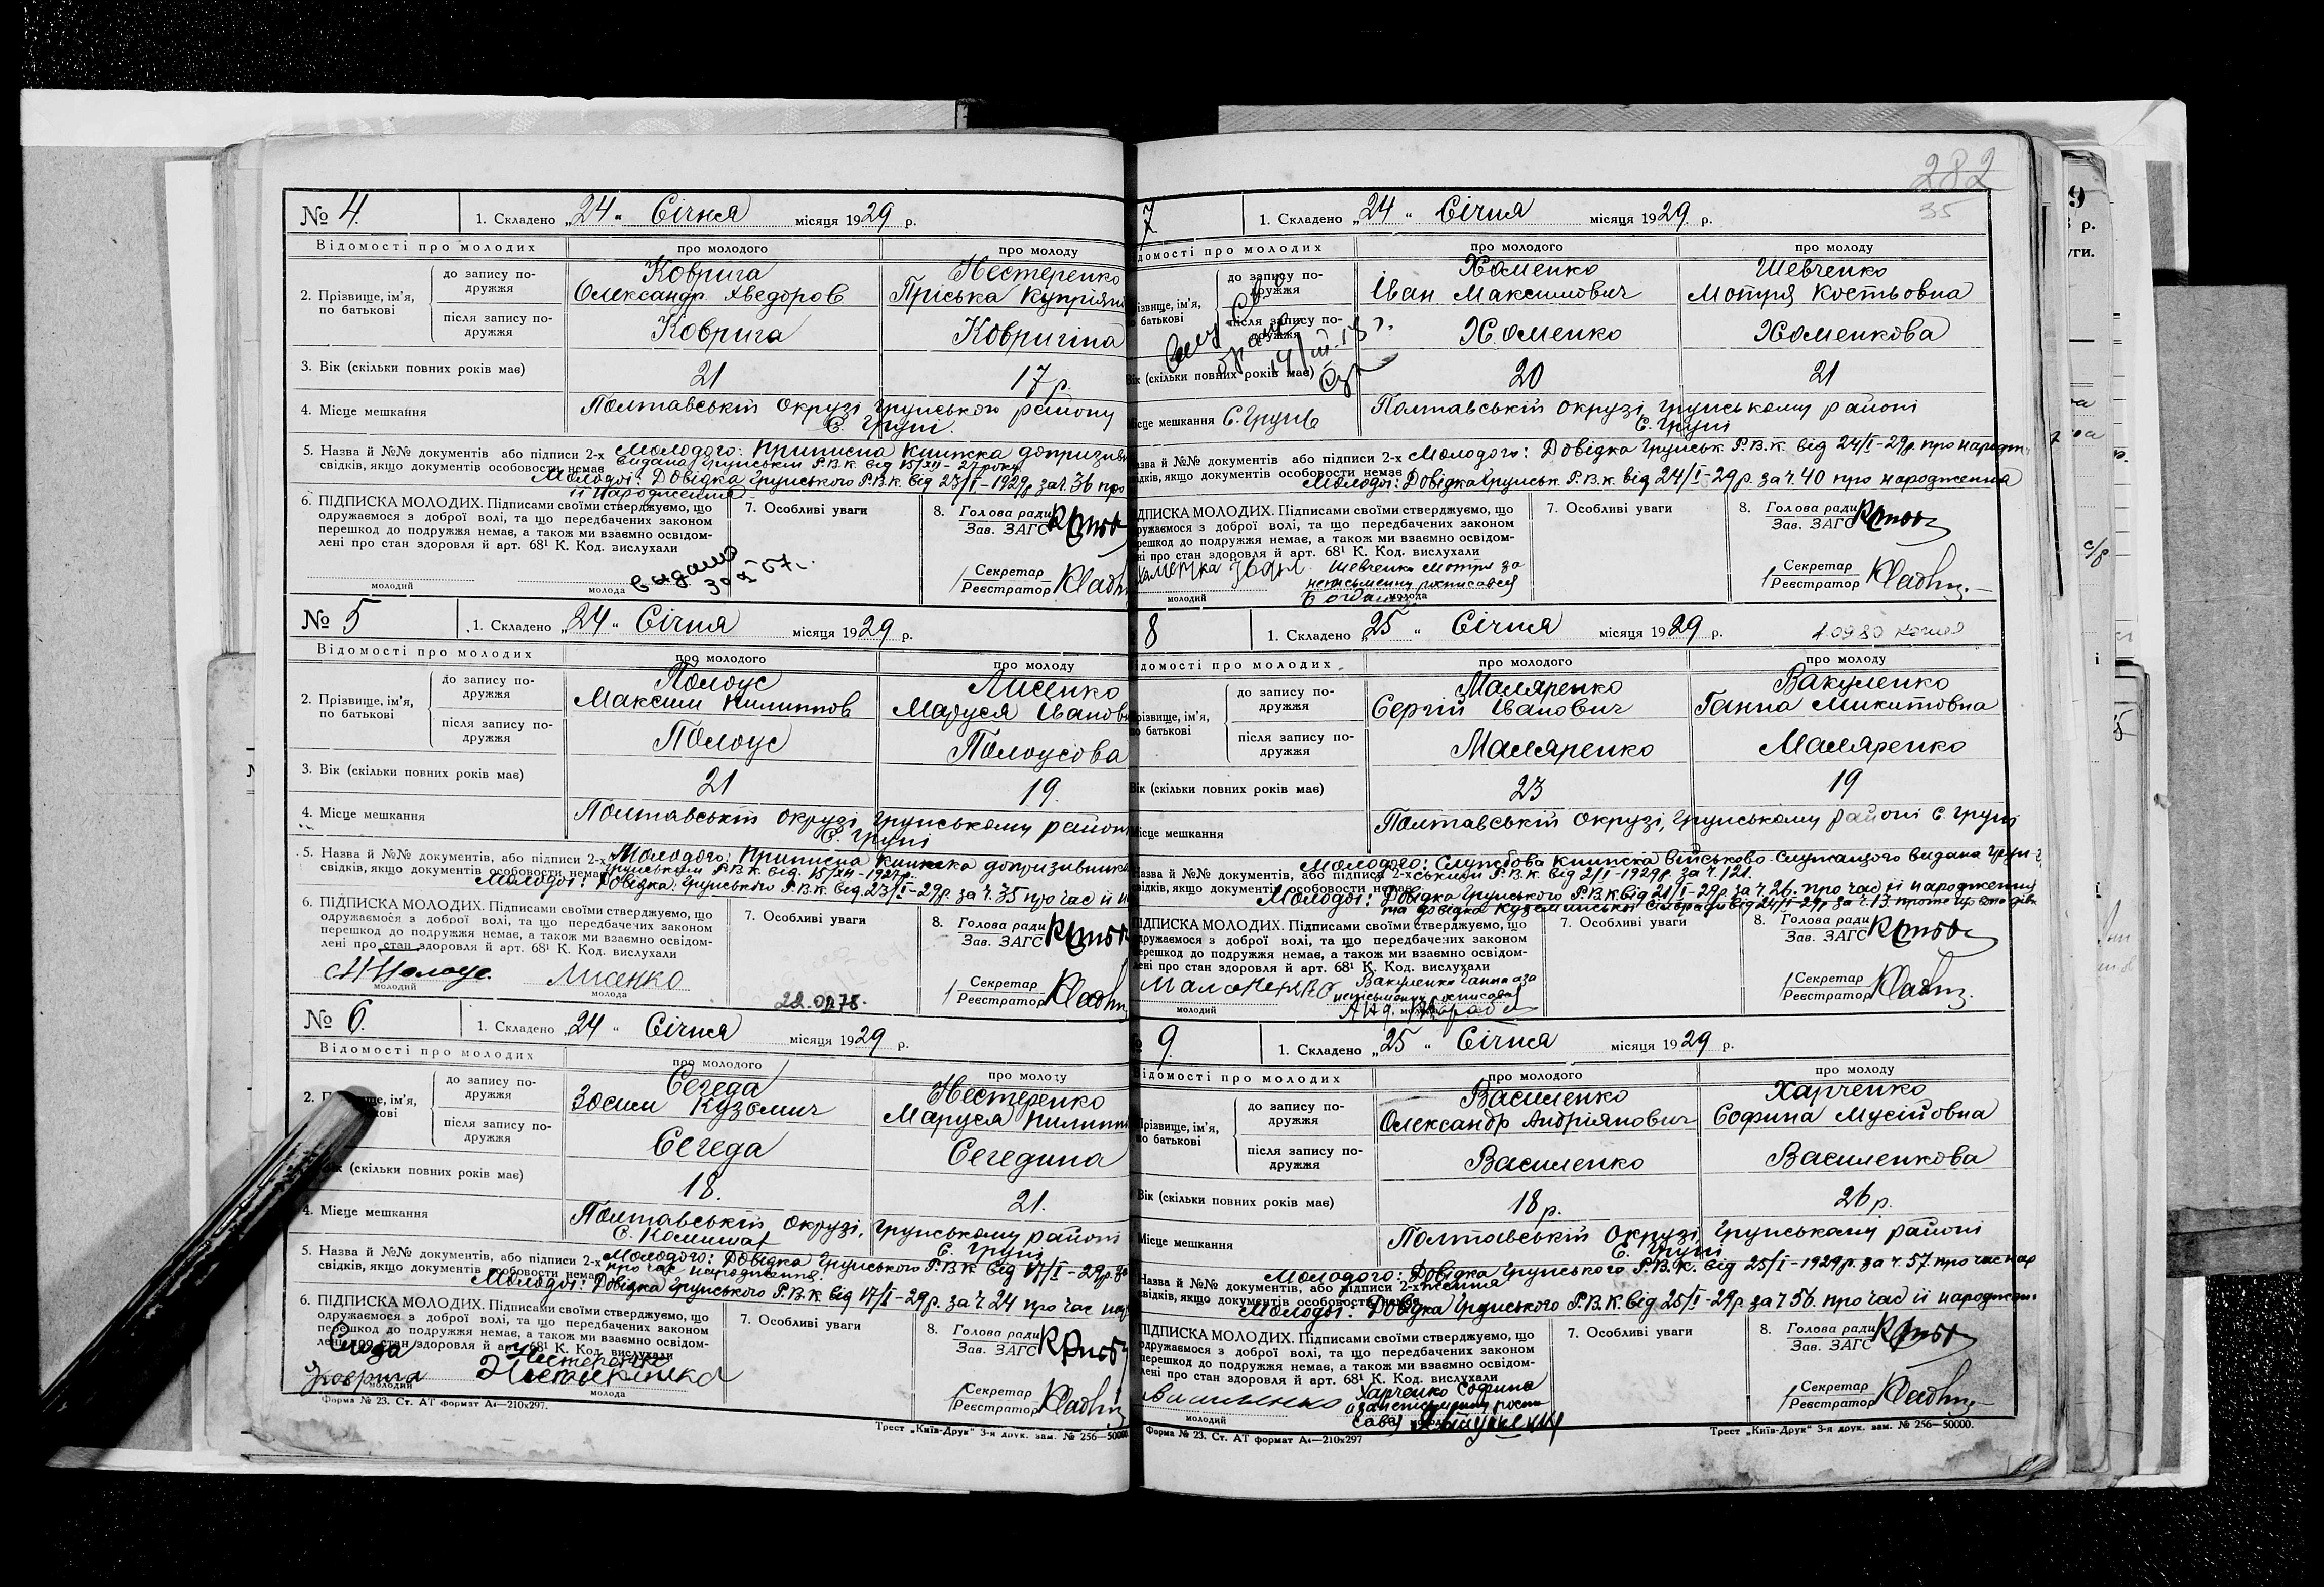 282
35
№ 4. 1. Складено „24" Січня місяця 1929 р.
Відомості про молодих про молодого про молоду
2. Прізвище, ім'я, по батькові
до запису по-дружжя
Коврига Нестеренко
Олександр Хведоров Пріська Купріян
після запису по-дружжя
Коврига Ковригіна
3. Вік (скільки повних років має) 21 17 р.
4. Місце мешкання Полтавській Окрузі Грунського району
С. Груні.
5. Назва й №№ документів або підписи 2-х Молодого: Приписна Книжка допризивн
свідків, якщо документів особовости немає видана Грунським Р.В.К. від 15/XII - 27 року
Молодої: Довідка Грунського Р.В.К. від 23/I - 1929р за ч. 36 про
її народження
6. ПІДПИСКА МОЛОДИХ. Підписами своїми стверджуємо, що
одружаємося з доброї волі, та що передбачених законом
перешкод до подружжя немає, а також ми взаємно освідом-
лені про стан здоровля й арт. 68¹ К. Код. вислухали
молодий молода
видано
7. Особливі уваги
8. Голова ради
Зав. ЗАГС
Секретар
Реєстратор
№ 5 1. Складено „24" Січня місяця 1929 р.
Відомості про молодих про молодого про молоду
2. Прізвище, ім'я, по батькові
до запису по-дружжя
Полоус Лисенко
Максим Пилипов Маруся Іванов
після запису по-дружжя
Полоус Полоусова
3. Вік (скільки повних років має) 21 19.
4. Місце мешкання Полтавській Окрузі, Грунському районі
С. Груні
5. Назва й №№ документів, або підписи 2-х Молодого: Приписна Книжка допризивника
свідків, якщо документів особовости немає Грунським Р.В.К. від 15/XII - 1927р.
Молодої: Довідка Грунського Р.В.К. від 23/I - 29р. за ч. 35 про час її н
6. ПІДПИСКА МОЛОДИХ. Підписами своїми стверджуємо, що
одружаємося з доброї волі, та що передбачених законом
перешкод до подружжя немає, а також ми взаємно освідом-
лені про стан здоровля й арт. 68¹ К. Код. вислухали
М Полоус Лисенко
молодий молода
7. Особливі уваги
8. Голова ради
Зав. ЗАГС
Секретар
Реєстратор
№ 6. 1. Складено „24" Січня місяця 1929 р.
Відомості про молодих про молодого про молоду
до запису по-дружжя
Сегеда Нестеренко
Зосим Кузьмич Маруся Пилипи
після запису по-дружжя
Сегеда Сегедина
(скільки повних років має) 18. 21.
4. Місце мешкання Полтавській Окрузі, Грунському районі
С. Груні
5. Назва й №№ документів, або підписи 2-х Молодого: Довідка Грунського Р.В.К. від 17/I - 29р. за
свідків, якщо документів особовости немає про час народження.
Молодої: Довідка Грунського Р.В.К. від 17/I - 29р. за ч. 24 про час на
6. ПІДПИСКА МОЛОДИХ. Підписами своїми стверджуємо, що
одружаємося з доброї волі, та що передбачених законом
перешкод до подружжя немає, а також ми взаємно освідом-
лені про стан здоровля й арт. 68¹ К. Код. вислухали
Коврига
молодий молода
7. Особливі уваги
8. Голова ради
Зав. ЗАГС
Секретар
Реєстратор
Форма № 23. Ст. АТ формат А₄—210х297.
Трест „Київ-Друк" 3-я друк. зам. № 256—50000
7 1. Складено „24" Січня місяця 1929 р.
про молодих про молодого про молоду
до запису по-дружжя
Хоменко Шевченко
Іван Максимович Мотря Костьовна
після запису по-дружжя
Хоменко Хоменкова
Вік (скільки повних років має) 20 21
мешкання С. Грунь Полтавській окрузі, Грунському районі
С. Груні
№№ документів або підписи 2-х Молодого: Довідка Грунськ. Р.В.К. від 24/I - 29р. про народж
якщо документів особовости немає
Молодої: Довідка Грунськ. Р.В.К. від 24/I - 29р. за ч. 40 про народження
МОЛОДИХ. Підписами своїми стверджуємо, що
з доброї волі, та що передбачених законом
до подружжя немає, а також ми взаємно освідом-
про стан здоровля й арт. 68¹ К. Код. вислухали
Шевченко Мотря за
неписьменну росписався
молодий молода
7. Особливі уваги
8. Голова ради
Зав. ЗАГС
Секретар
Реєстратор
8 1. Складено „25" Січня місяця 1929 р.
про молодих про молодого про молоду
до запису по-дружжя
Маляренко Вакуленко
Сергій Іванович Ганна Микитовна
після запису по-дружжя
Маляренко Маляренко
Вік (скільки повних років має) 23 19
мешкання Полтавській Окрузі, Грунському районі С. Груні
Молодого: Службова Книжка військово-служащого видана Грун-
Назва й №№ документів, або підписи 2-х ським Р.В.К. від 2/I - 1929р. за ч. 121.
якщо документів особовости немає
Молодої: Довідка Грунського Р.В.К від 21/I - 29р. за ч. 26. про час її народження
МОЛОДИХ. Підписами своїми стверджуємо, що
з доброї волі, та що передбачених законом
до подружжя немає, а також ми взаємно освідом-
про стан здоровля й арт. 68¹ К. Код. вислухали
Вакуленко Ганна за
неписьменну росписався
молодий
7. Особливі уваги
8. Голова ради
Зав. ЗАГС
Секретар
Реєстратор
9. 1. Складено „25" Січня місяця 1929 р.
Відомості про молодих про молодого про молоду
до запису по-дружжя
Василенко Харченко
Олександр Андріянович Софина Мусійовна
після запису по-дружжя
Василенко Василенкова
Вік (скільки повних років має) 18 р. 26 р.
Місце мешкання Полтавській Окрузі, Грунському районі
С. Груні
Молодого: Довідка Грунського Р.В.К. від 25/I - 1929р. за ч. 57. про час нар
Назва й №№ документів, або підписи 2-х ження
якщо документів особовости немає
Молодої: Довідка Грунського Р.В.К. від 25/I - 29р. за ч 56. про час її народжен.
ПІДПИСКА МОЛОДИХ. Підписами своїми стверджуємо, що
одружаємося з доброї волі, та що передбачених законом
перешкод до подружжя немає, а також ми взаємно освідом-
лені про стан здоровля й арт. 68¹ К. Код. вислухали
Харченко Софина
молодий
7. Особливі уваги
8. Голова ради
Зав. ЗАГС
Секретар
Реєстратор
Форма № 23. Ст. АТ формат А₄—210х297
Трест „Київ-Друк" 3-я друк. зам. № 256—50000.